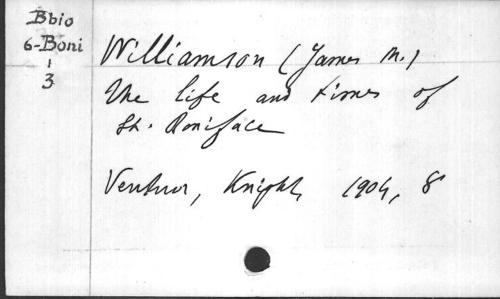 Bbio
6-Boni
1
3
Williamson (James M.)
The life and times of
St. Boniface
Ventnor, Knight, 1904, 8°